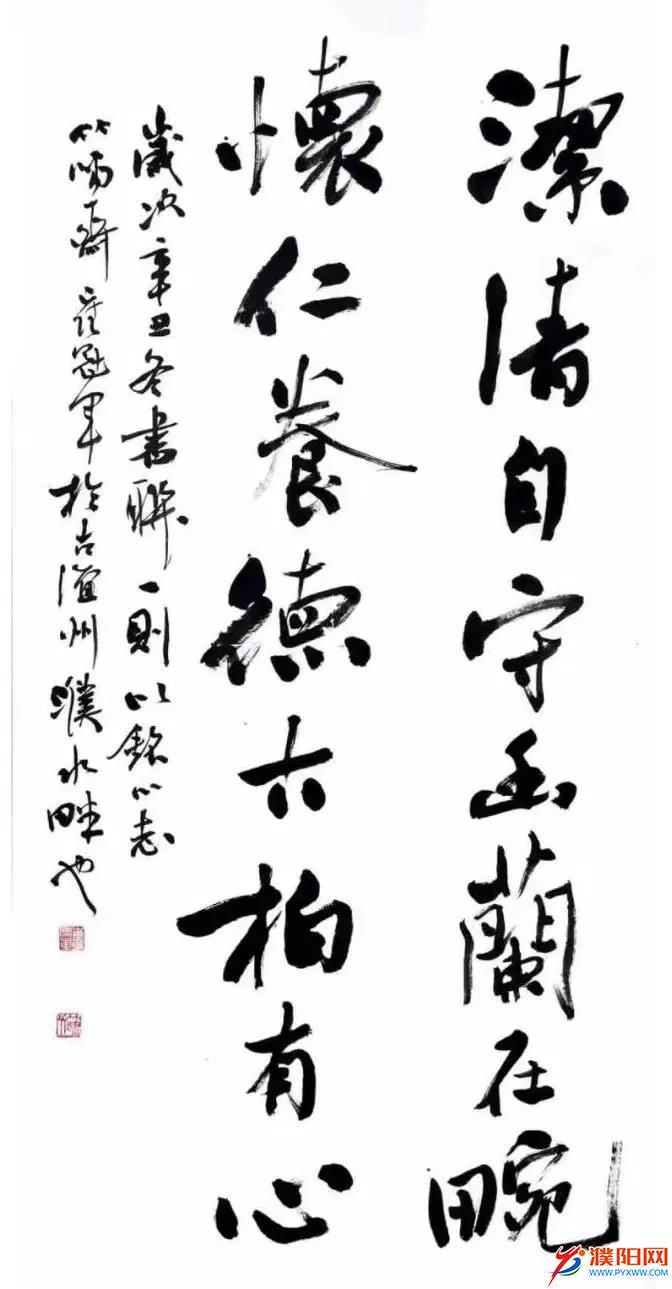 潔清自守幽蘭在畹
懷仁養德古柏有心
歲次辛丑冬書聯一則以銘心志
竹齋崔冠军於古澶州濮水畔也
濮阳网
WWW.PYXWW.COM